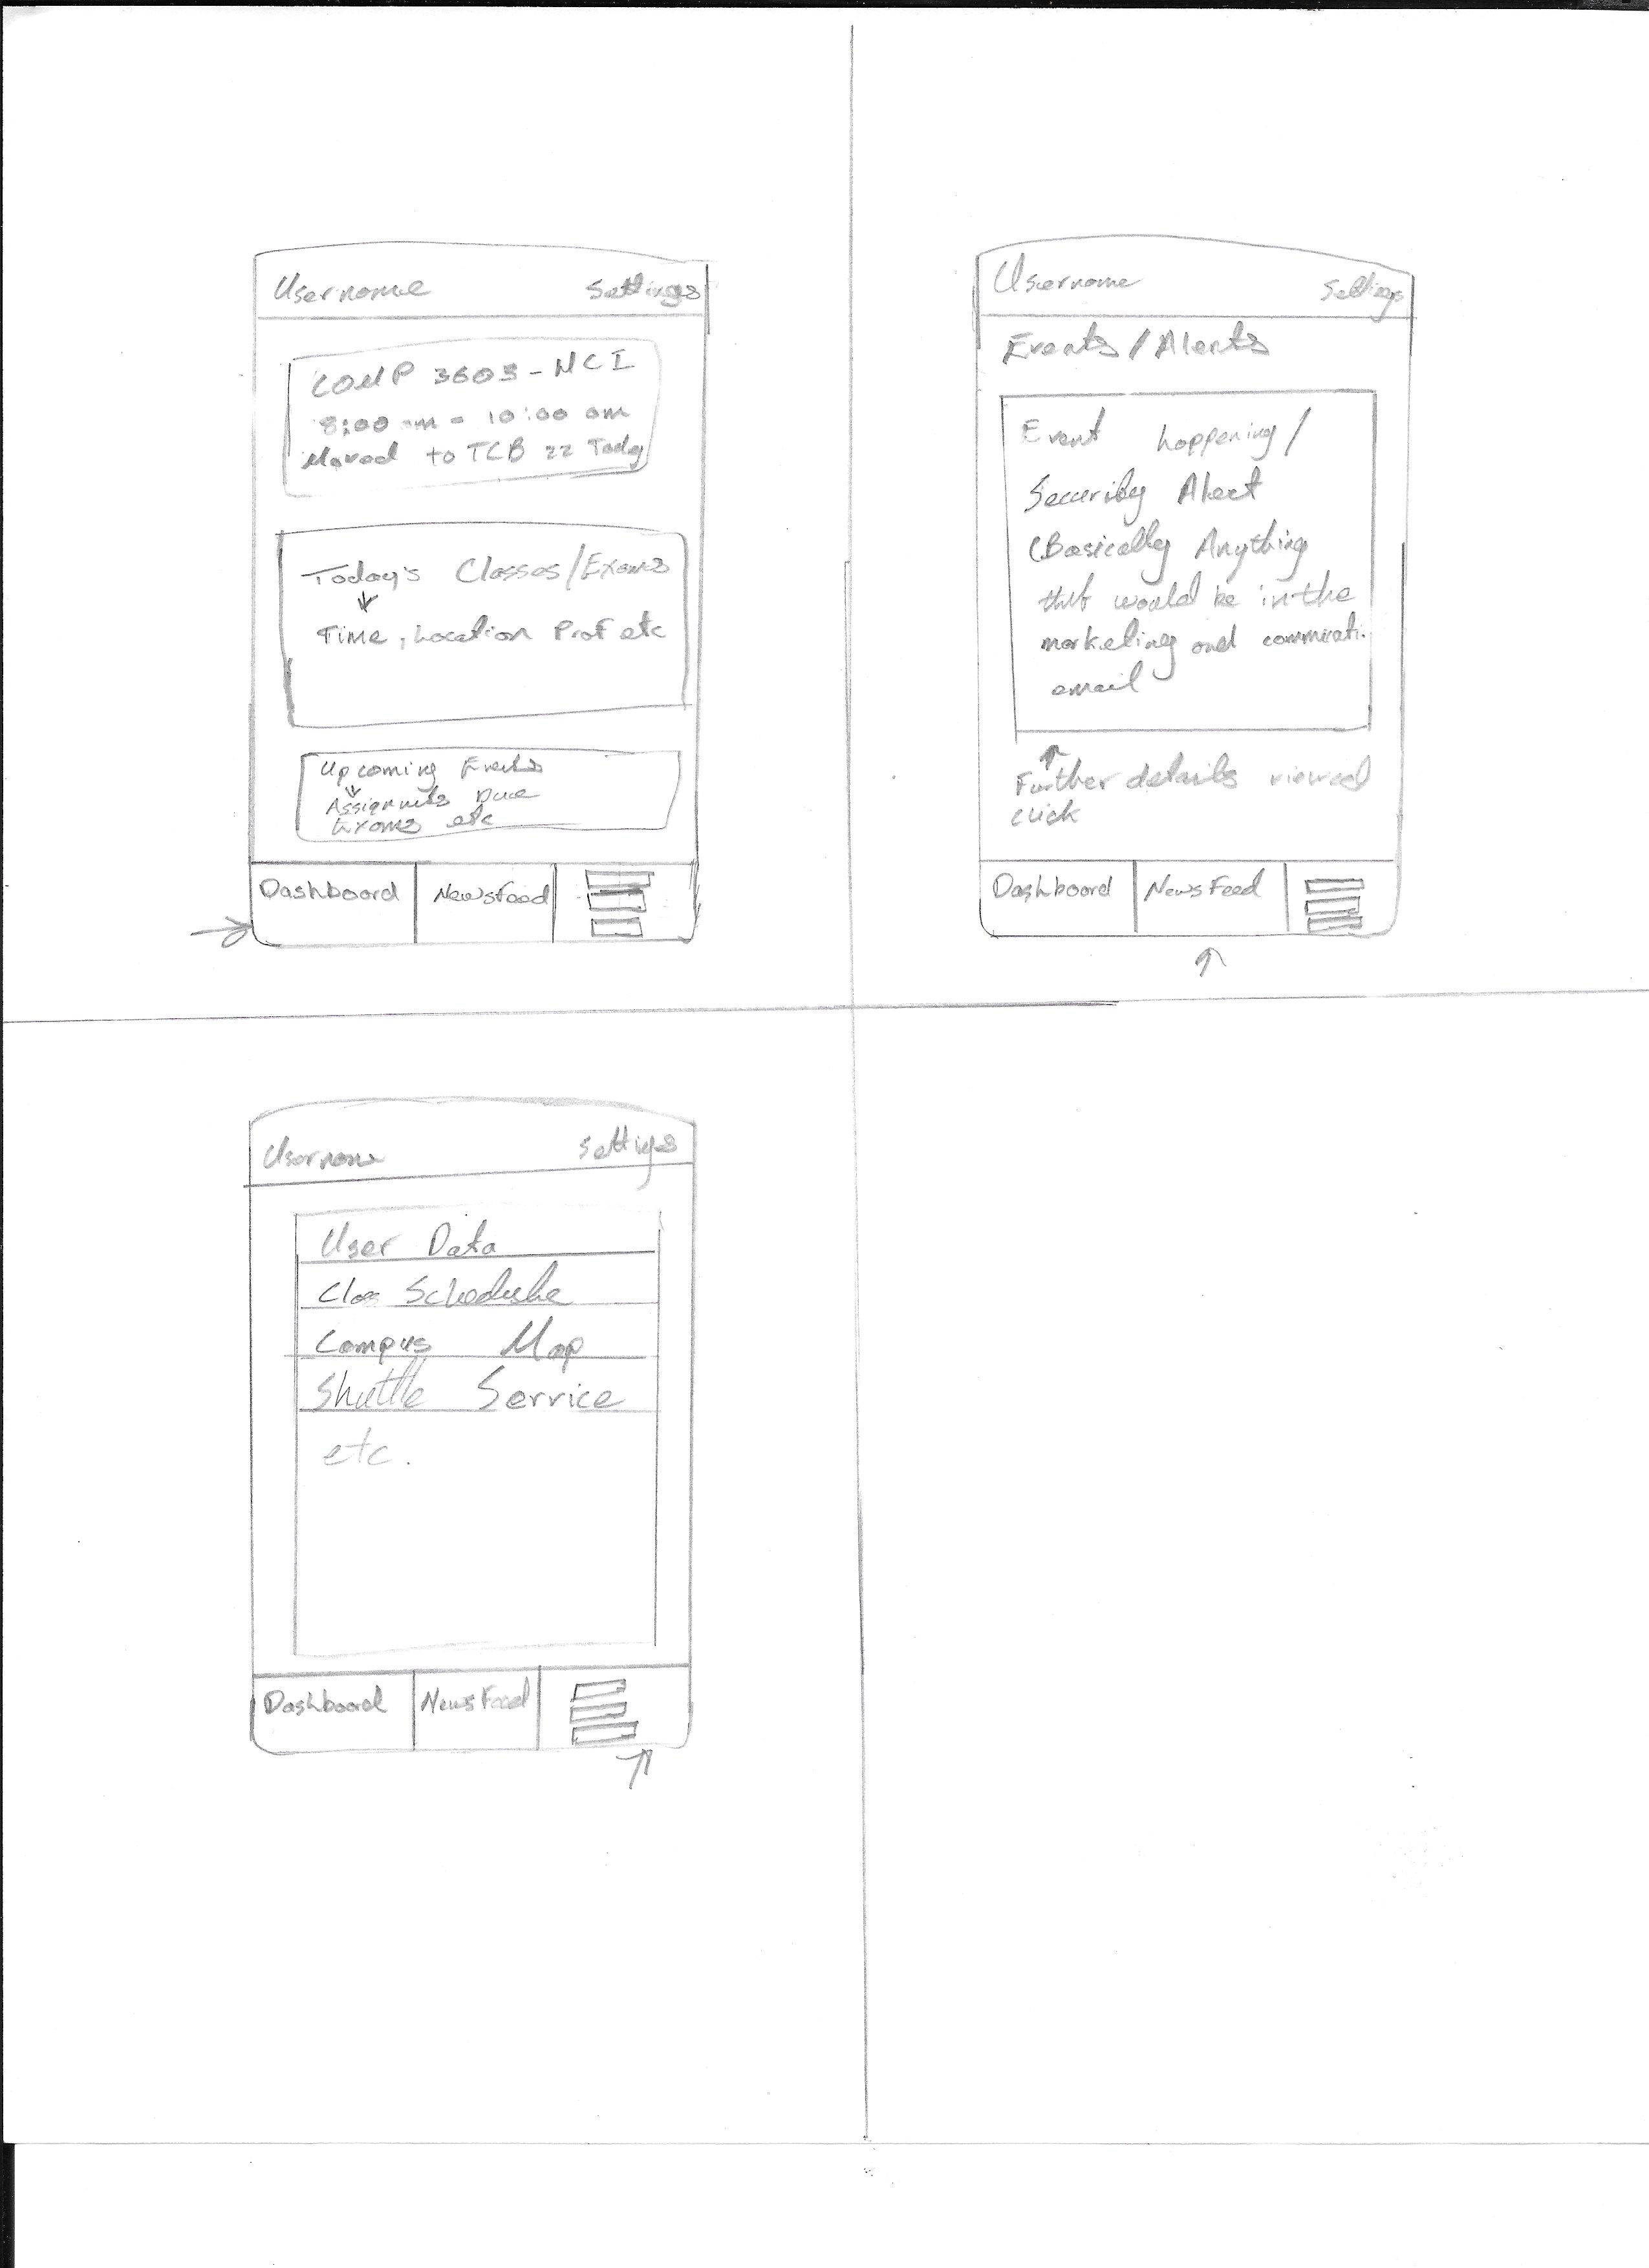 Username Settings
COMP 3603 - HCI
8:00 am - 10:00 am
Moved to TCB 22 Today
Today's Classes/Exams
Time, Location Prof etc
Upcoming Events
Assignmts Due
Exams etc
Dashboard NewsFeed
Username Settings
Events/Alerts
Event happening/
Security Alert
(Basically Anything
that would be in the
marketing and
email
Further details viewed
click
Dashboard NewsFeed
Username Settings
User Data
Class Schedule
Campus Map
Shuttle Service
etc.
Dashboard NewsFeed